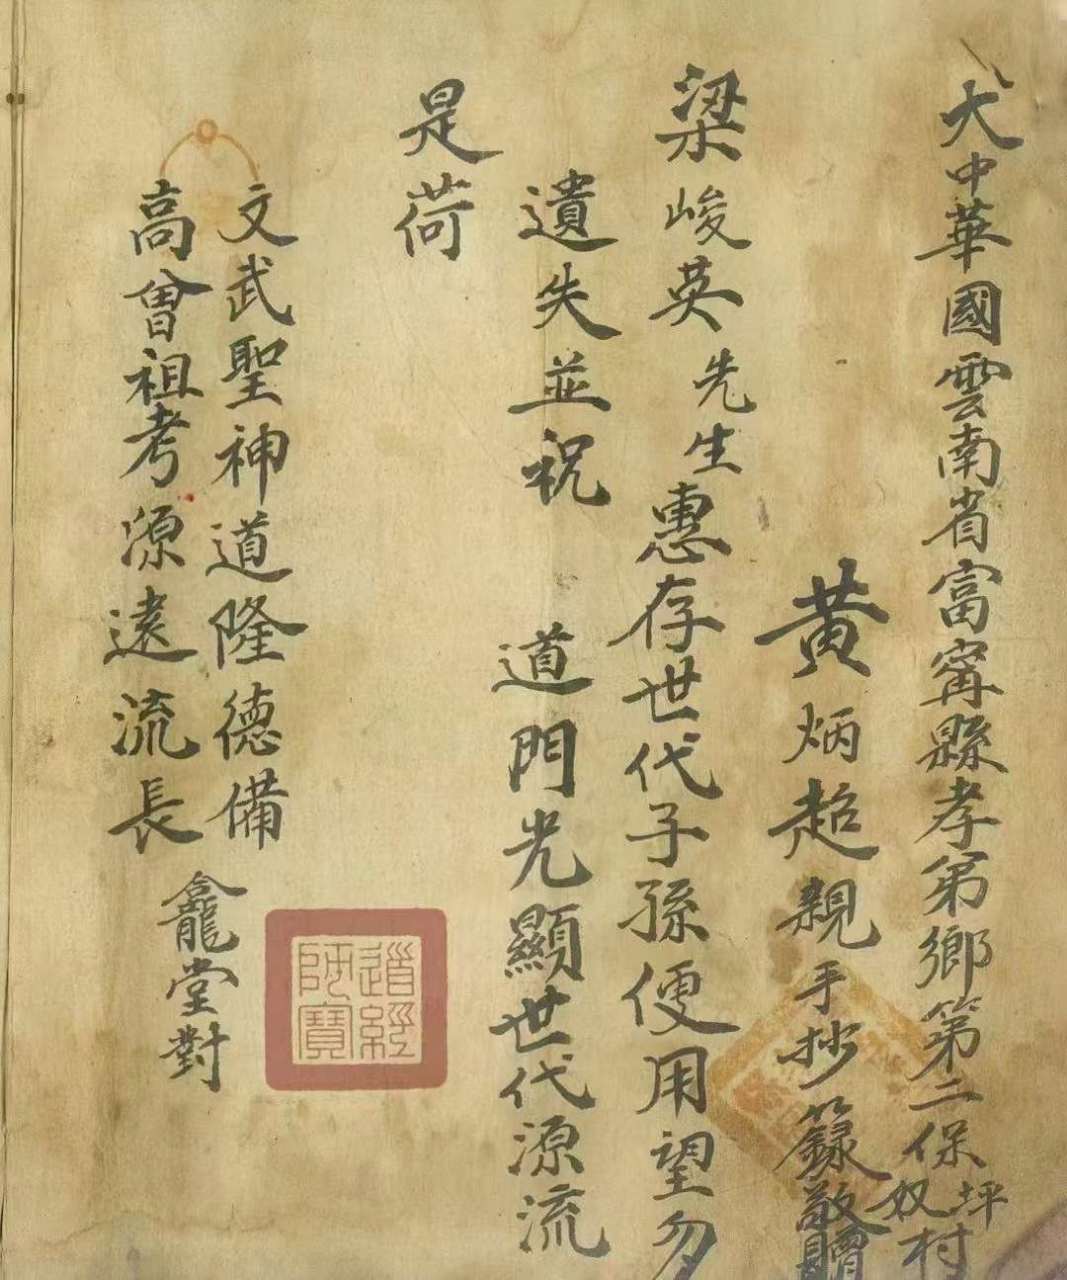 大中華國雲南省富寗縣孝弟鄉第二保坪奴村
黃炳超親手抄籙敬贈
梁峻英先生惠存世代子孫便用望勿
遺失並祝 道門光顯世代源流
是荷
文武聖神道隆德備
高曾祖考源遠流長
龕堂對
道經師寶